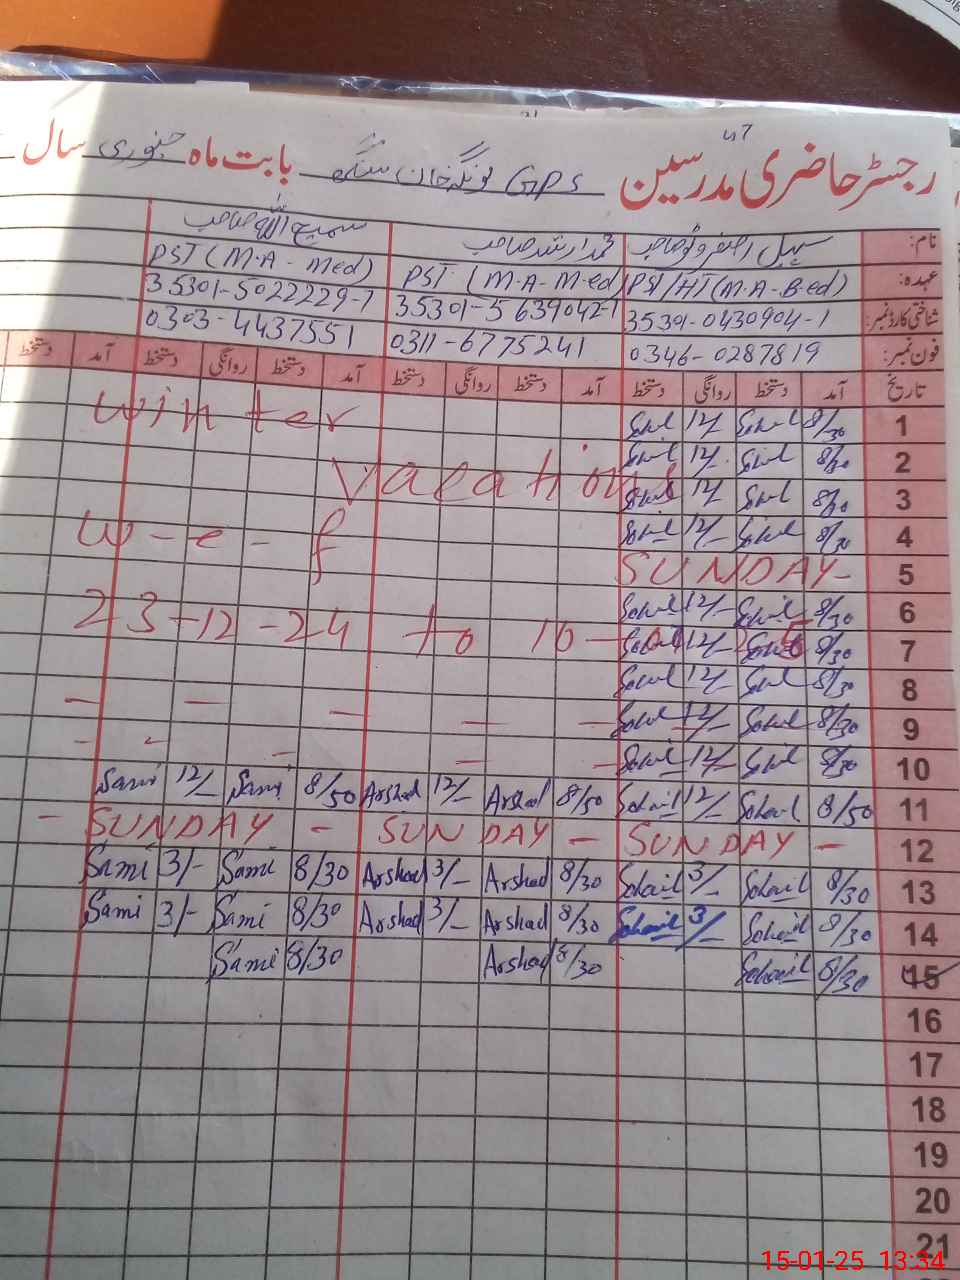 رجسٹر حاضری مدرسین GPS بونگہ خان سنگھ بابت ماہ جنوری سال
نام: سہیل صاحب محمد ارشد صاحب سمیع اللہ صاحب
عہدہ: PST/HT (M.A-B.ed) PST (M.A-M.ed) PST (M.A-Med)
شناختی کارڈ نمبر: 35301-0430904-1 35301-5639042-1 35301-5022229-7
فون نمبر: 0346-0287819 0311-6775241 0303-4437551
تاریخ آمد دستخط روانگی دستخط آمد دستخط روانگی دستخط آمد دستخط روانگی دستخط آمد دستخط
1 8/30 Sohail 12/- Sohail
2 8/30 Sohail 12/- Sohail
3 8/30 Sohail 12/- Sohail
4 8/30 Sohail 12/- Sohail
5 SUNDAY-
6 8/30 Sohail 12/- Sohail
7 8/30 Sohail 12/- Sohail
8 8/30 Sohail 12/- Sohail
9 8/30 Sohail 12/- Sohail
10 8/30 Sohail 12/- Sohail
winter
vacations
w-e-f
23-12-24 to 10-
11 8/50 Sohail 12/- Sohail 8/50 Arshad 12/- Arshad 8/50 Sami 12/- Sami
12 SUNDAY - SUNDAY - SUNDAY -
13 8/30 Sohail 3/- Sohail 8/30 Arshad 3/- Arshad 8/30 Sami 3/- Sami
14 8/30 Sohail 3/- Sohail 8/30 Arshad 3/- Arshad 8/30 Sami 3/- Sami
15 8/30 Sohail 8/30 Arshad 8/30 Sami
16
17
18
19
20
21
15-01-25 13:34